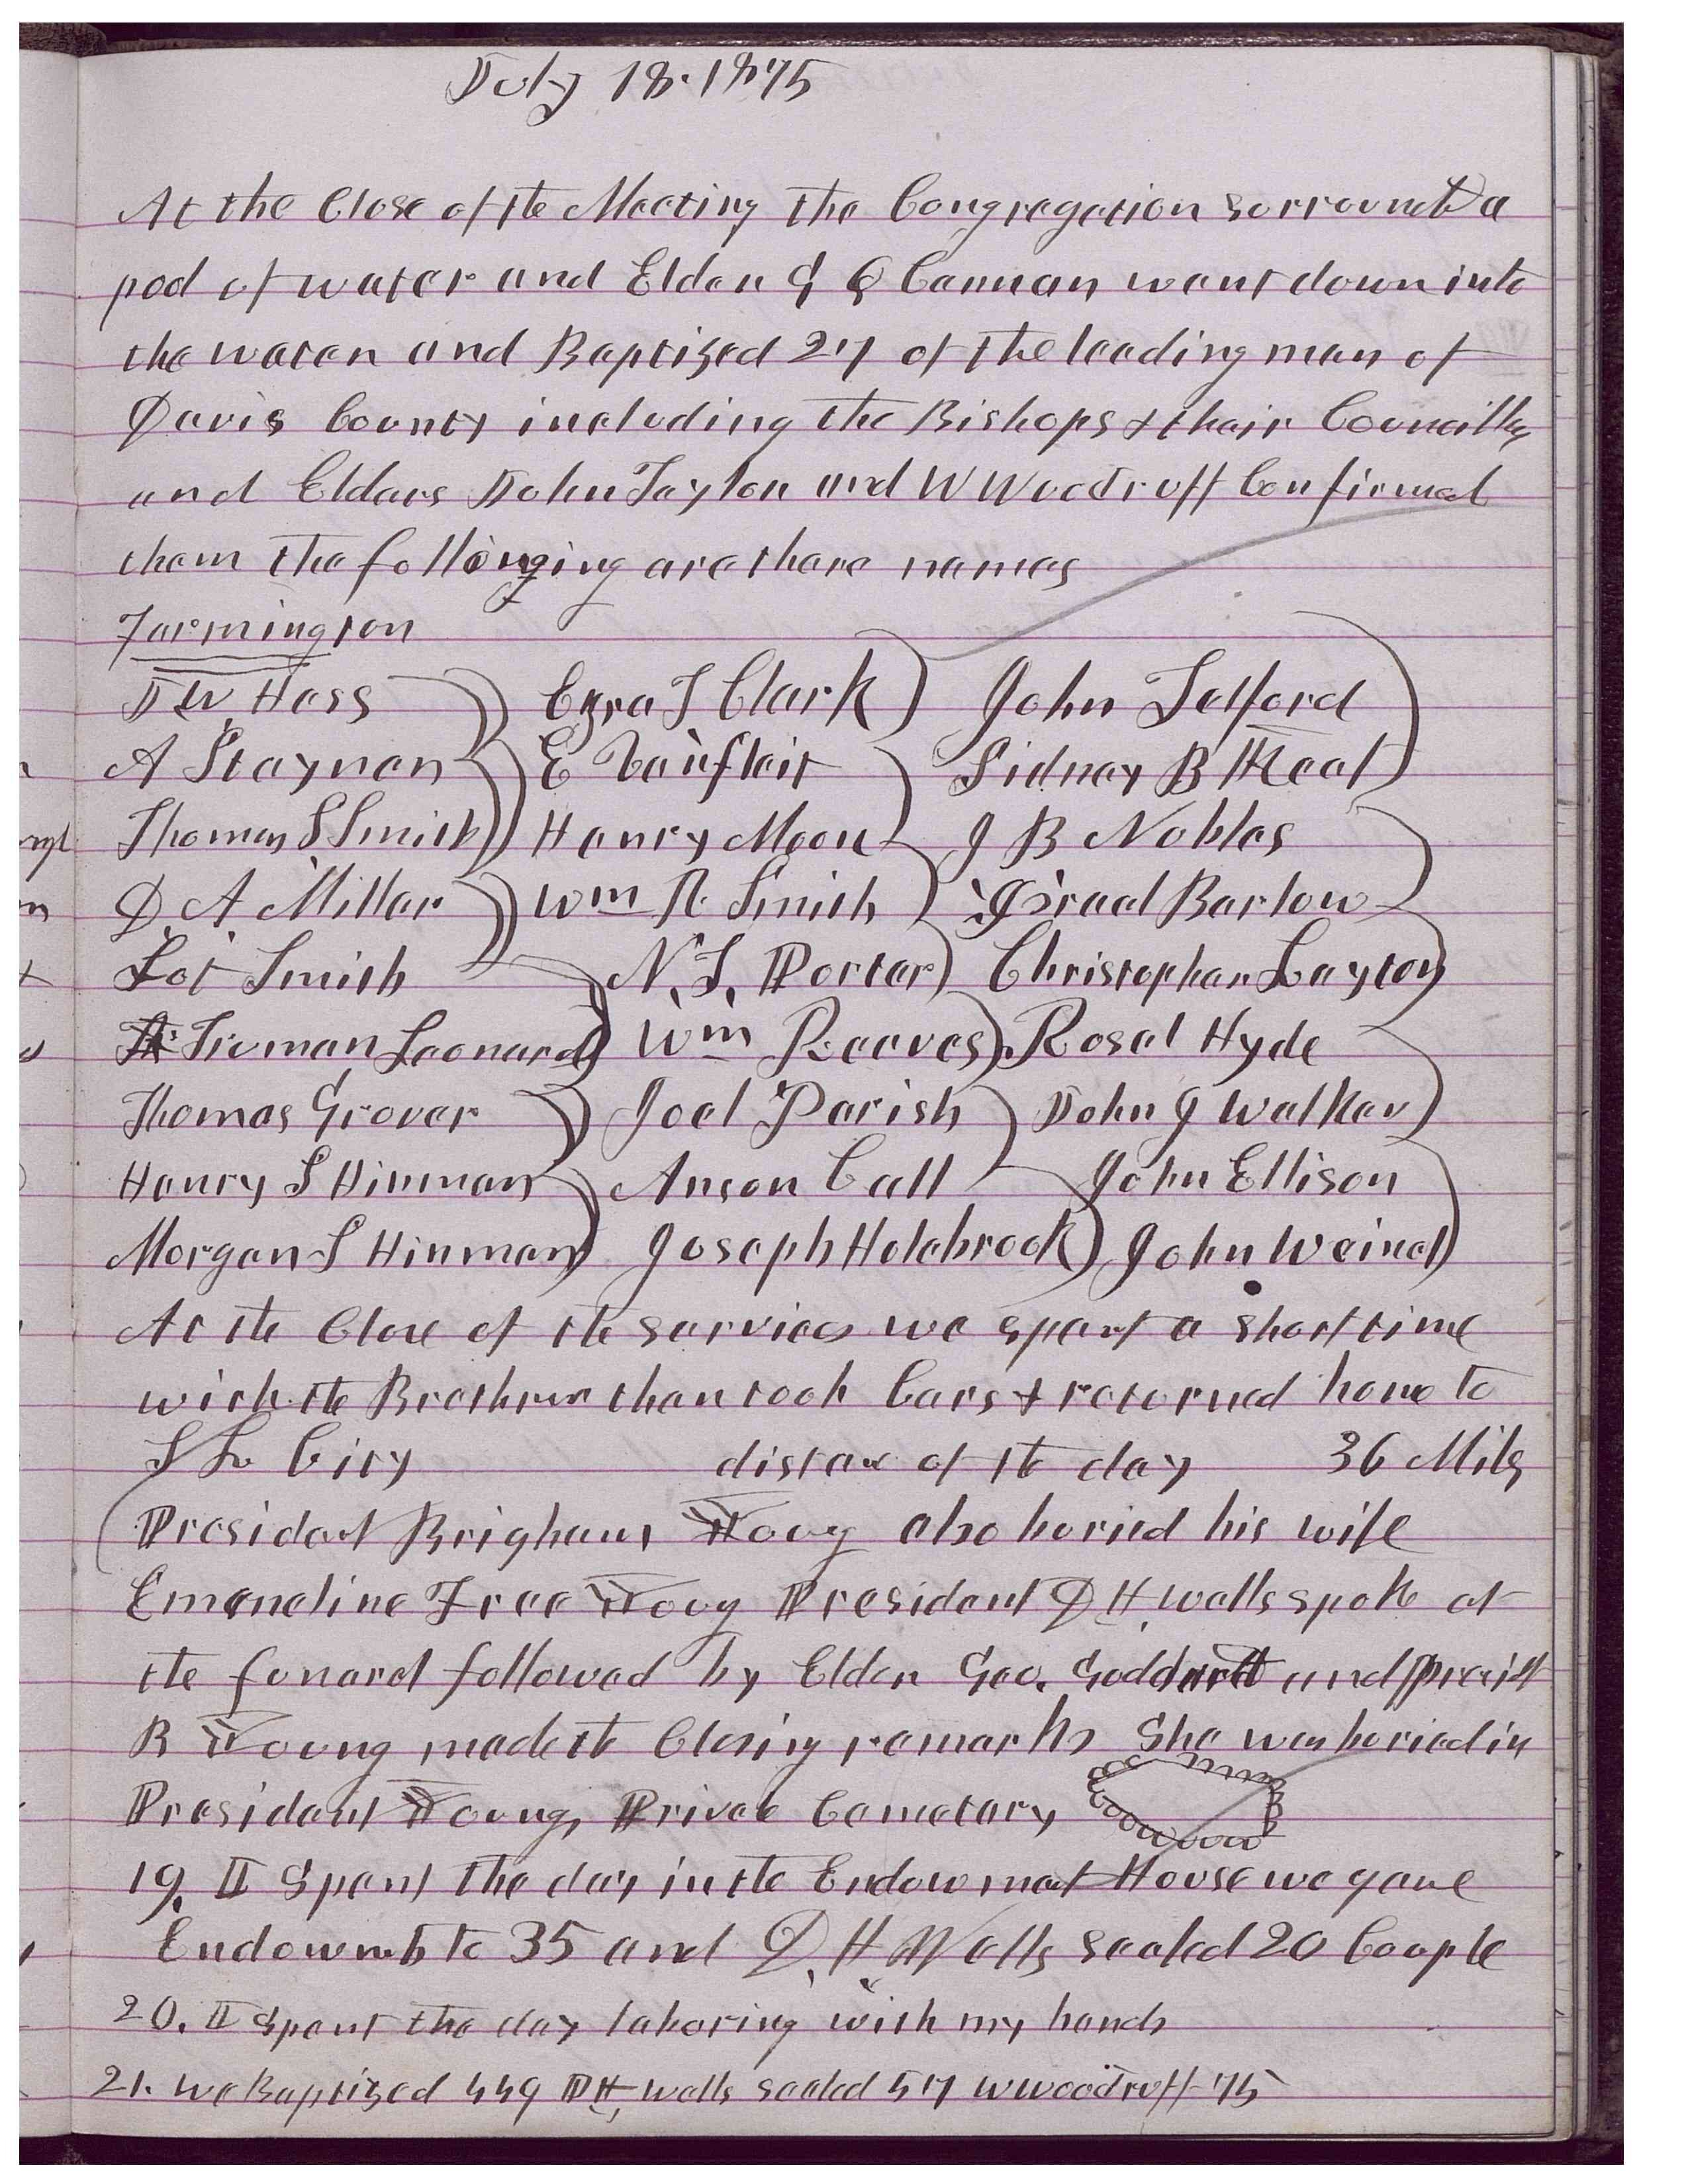 July 18. 1875
At the Close of the Meeting the Congregation sorround a
pool of water and Elder G Q Cannon went down into
the water and Baptized 27 of the leading men of
Davis County including the Bishops & their Councillors
and Elders John Taylor and W Woodruff Confirmed
them the following are there names
Farmington
J W Hess Ezra T Clark John Telford
A Stayner E Vanfleit Sidney B Kent
Thomas S Smith Henry Moon J B Nobles
D. A. Miller Wm R. Smith Israel Barlow
Lot Smith N. T. Porter Christopher Layton
Truman Leonard Wm Reeves Rosel Hyde
Thomas Grover Joel Parish John J Walker
Henry S Hinman Anson Call John Ellison
Morgan S Hinman Joseph Holebrook John Weinel
At the Close of the services we spent a short time
with the Brethren then took Cars & returned home to
S L City distance of the day 36 Miles
President Brigham Young also buried his wife
Emeneline Free Young President D H. Wells spoke at
the funeral followed by Elder Geo. Goddard and President
B Young made the Closing remarks She was buried in
President Youngs Private Cemetary
19. I Spent the day in the Endowment House we gave
Endowments to 35 and D. H. Wells sealed 20 Couple
20. I spent the day laboring with my hands
21. We Baptized 449 D H, Wells sealed 57 W Woodruff 75